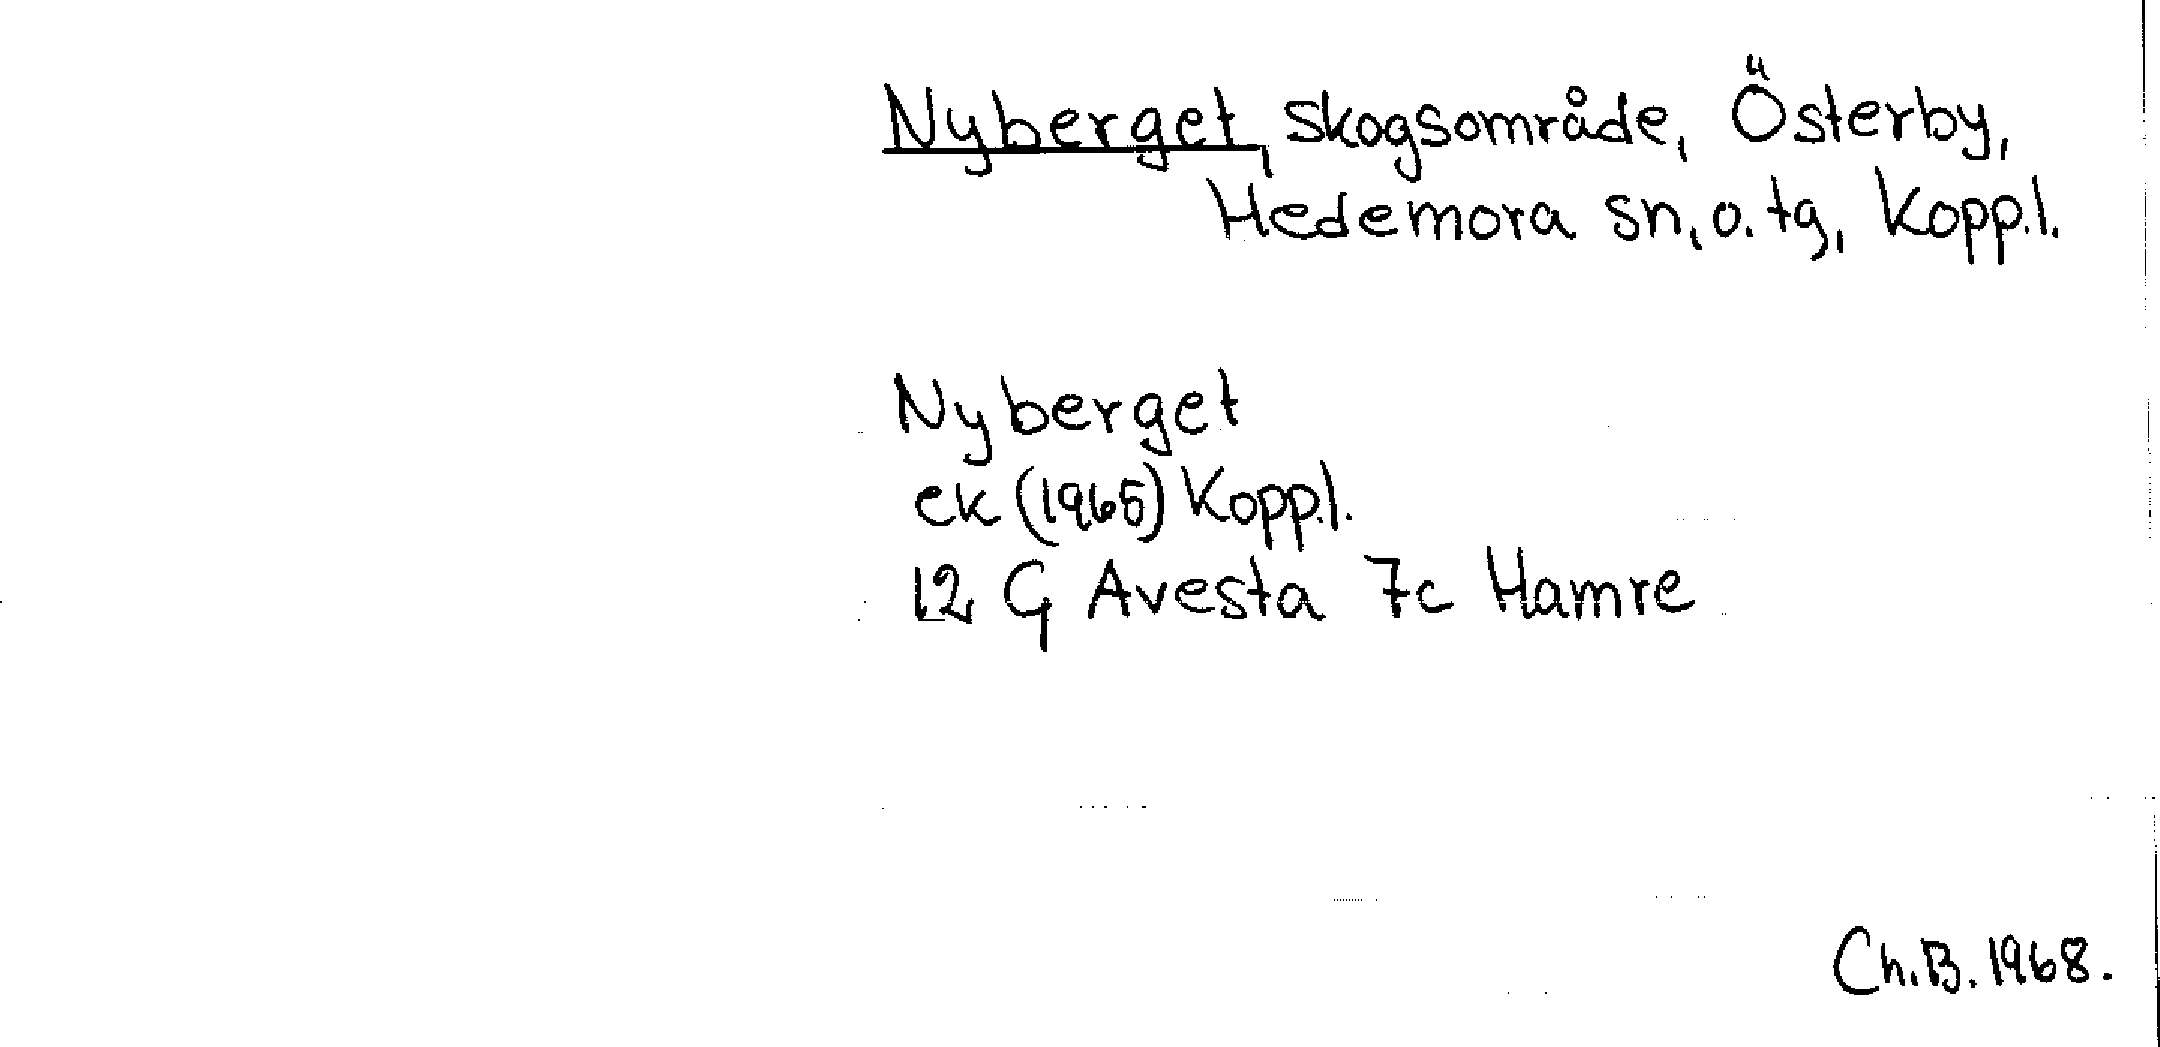 Nyberget, skogsområde, Österby,
Hedemora sn, o. tg, Kopp.l.
Nyberget
ek (1965) Kopp.l.
12 G Avesta 7c Hamre
Ch.B. 1968.